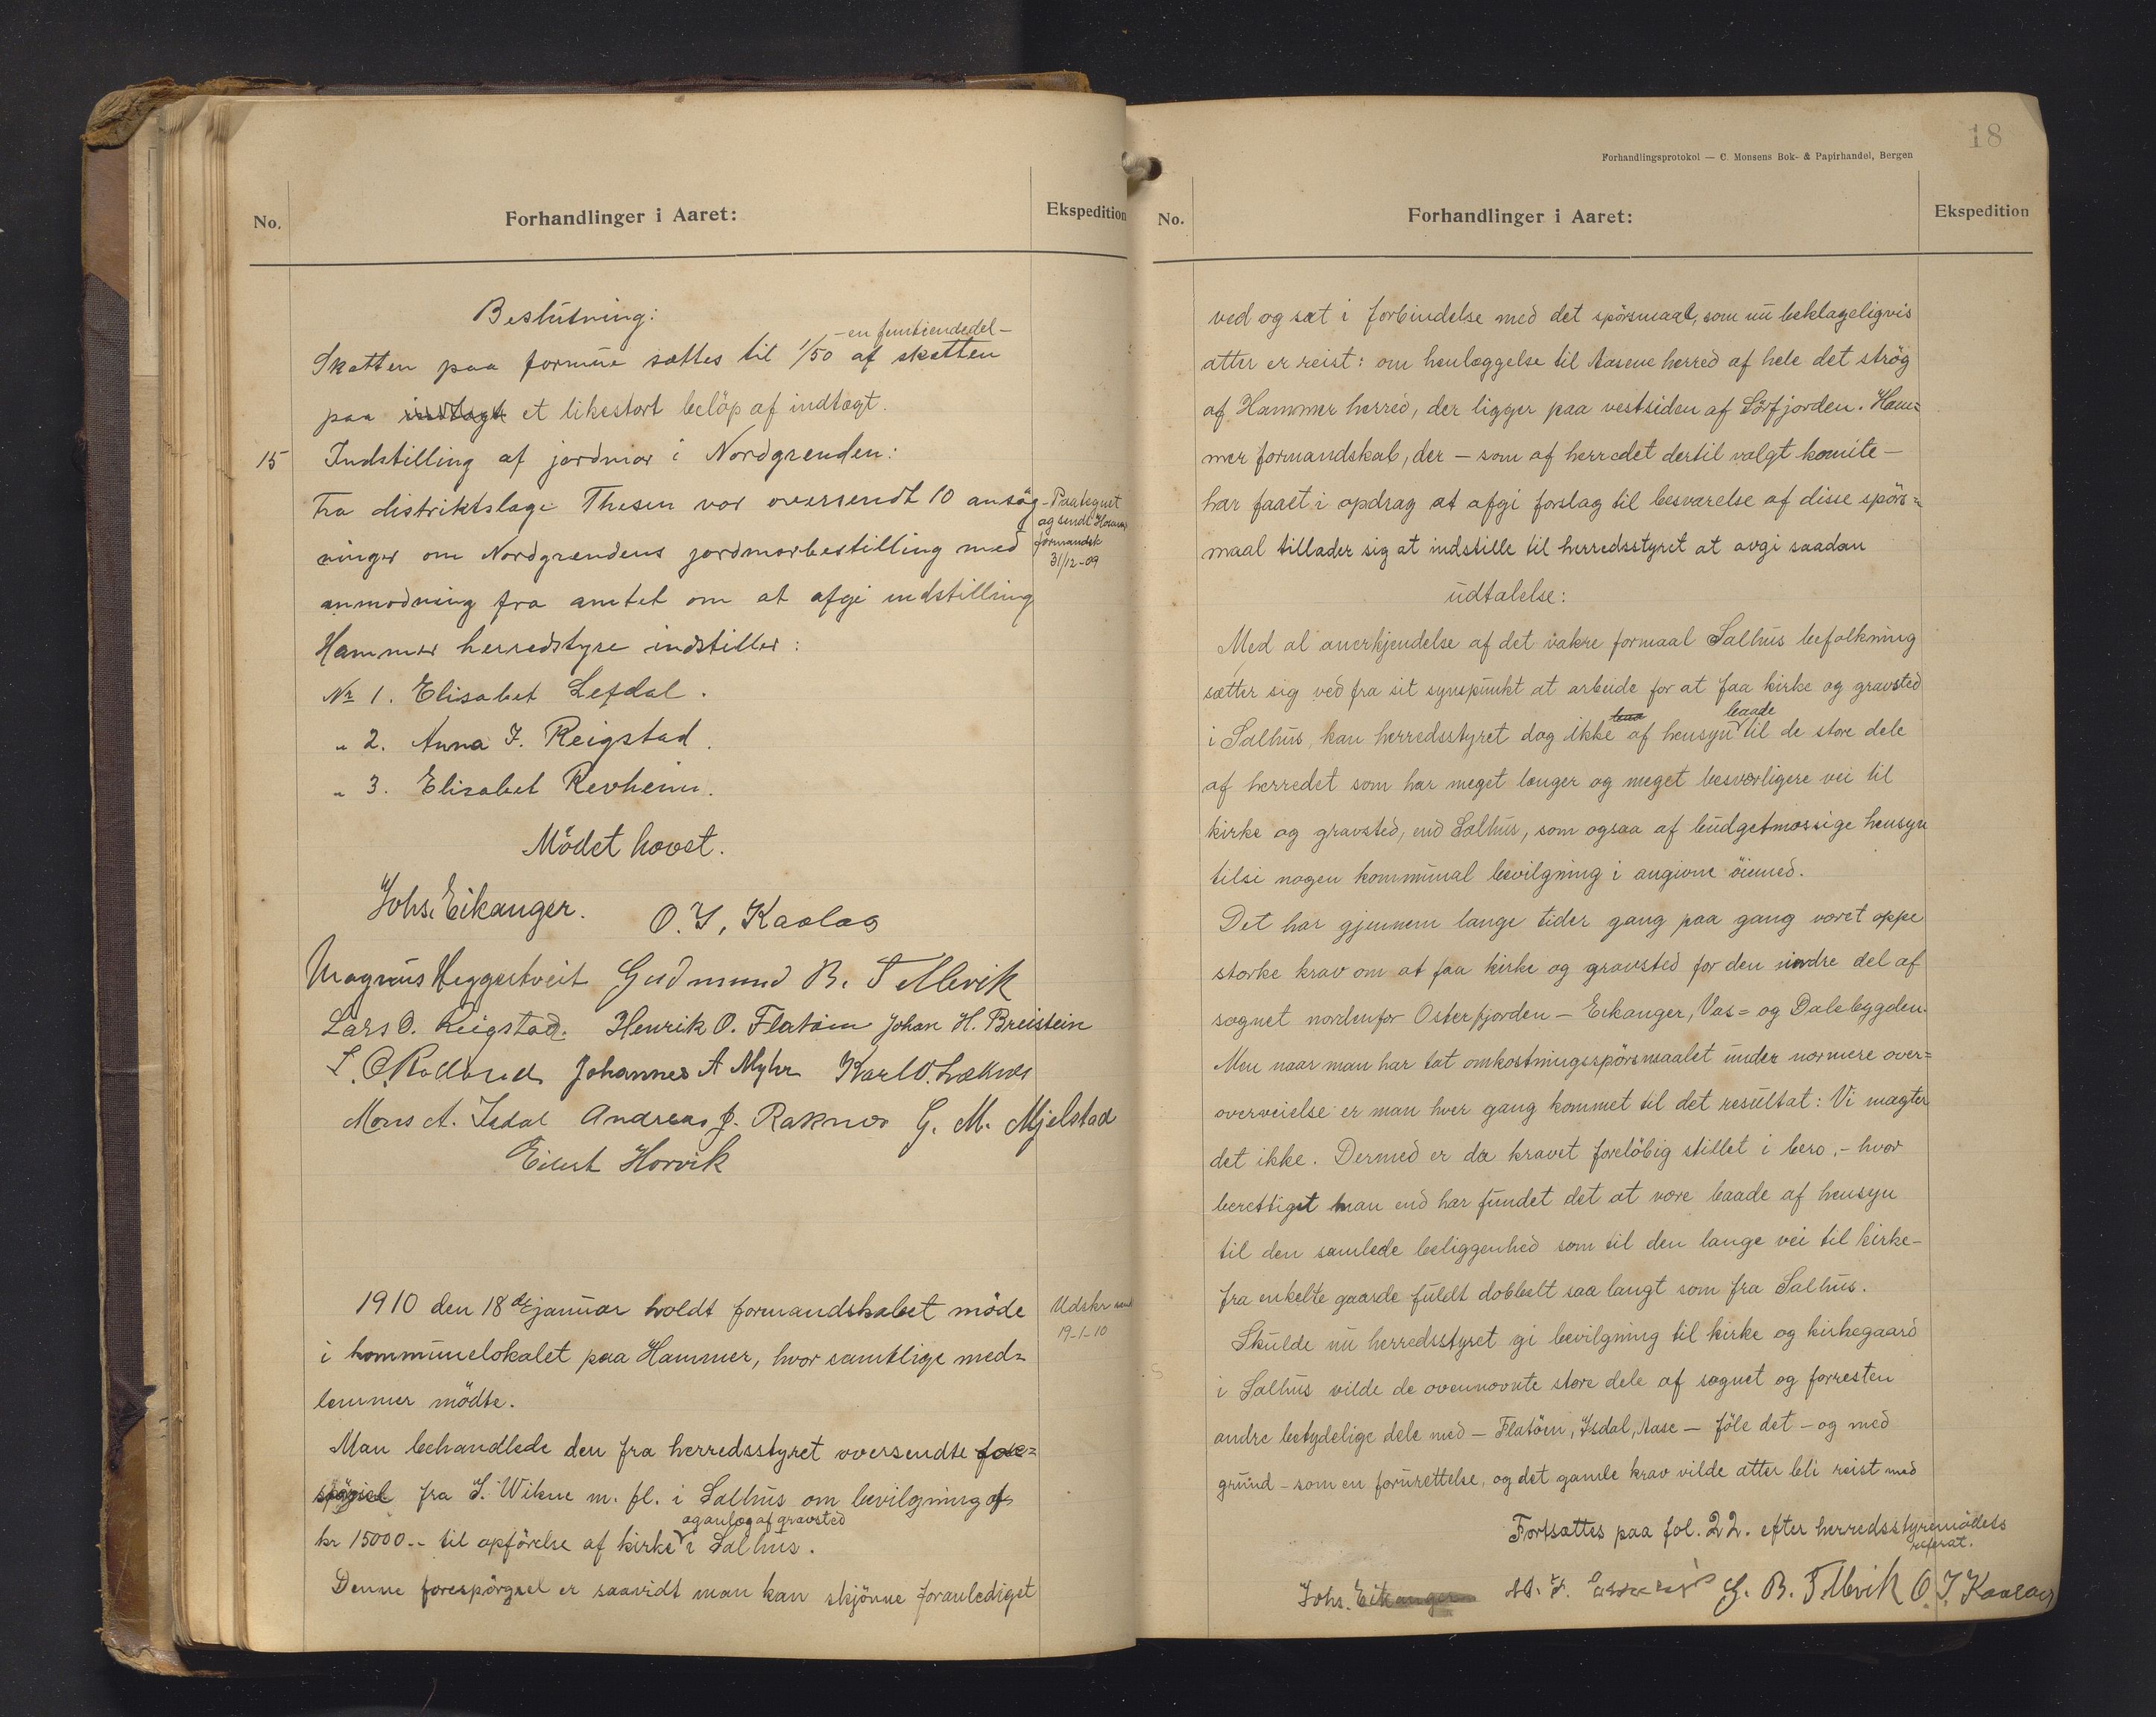 No.
Forhandlinger i Aaret:
Ekspedition
Beslutning:
-en femtiendedel-
Skatten paa formue sættes til 1/50 af skatten
paa indtægt et likestort beløp af indtægt.
15 Indstilling af jordmor i Nordgrenden:
Fra distriktslæge Thesen var oversendt 10 ansøg-
ninger om Nordgrendens jordmorbestilling med
anmodning fra amtet om at afgi indstilling
Hammer herredstyre indstiller:
Nr 1. Elisabet Lefdal.
" 2. Anna J. Reigstad.
" 3. Elisabet Revheim.
-Paategnet
og sendt Hosanger
formandsk
31/12-09
Mödet hævet.
Johs. Eikanger. O. J. Kaalaas
Magnus Heggertveit Gudmund B. Tellevik
Lars O. Reigstad. Henrik O. Flatöien Johan H. Breistein
Johannes A Myhr Karl O.
Mons A. Isdal Andreas J. Raknes G. M. Mjelstad
Eilert Horvik
1910 den 18de januar holdt formandskabet möde
i kommunelokalet paa Hammer, hvor samtlige med-
lemmer mödte.
Udskr send
19-1-10
Man behandlede den fra herredsstyret oversendte fore-
spørgsel fra J. Wikne m. fl. i Salhus om bevilgning af
og anlæg af gravsted
kr 15000.- til opförelse af kirke i Salhus.
Denne forespörgsel er saavidt man kan skjönne foranlediget
18
Forhandlingsprotokol — C. Monsens Bok- & Papirhandel, Bergen
No.
Forhandlinger i Aaret:
Ekspedition
ved og sat i forbindelse med det spörsmaal, som nu beklageligvis
atter er reist: om henlæggelse til Aasene herred af hele det strög
af Hammer herred, der ligger paa vestsiden af Sörfjorden. Ham-
mer formandskab, der – som af herredet dertil valgt komite –
har faaet i opdrag at afgi forslag til besvarelse af disse spörs-
maal tillader sig at indstille til herredsstyret at avgi saadan
udtalelse:
Med al anerkjendelse af det vakre formaal Salhus befolkning
sætter sig ved fra sit synspunkt at arbeide for at faa kirke og gravsted
baa baade
i Salhus, kan herredsstyret dog ikke af hensyn til de store dele
af herredet som har meget længer og meget besværligere vei til
kirke og gravsted, end Salhus, som ogsaa af budgetmæssige hensyn
tilsi nogen kommunal bevilgning i angivne öiemed.
Det har gjennem lange tider gang paa gang været oppe
stærke krav om at faa kirke og gravsted for den nordre del af
sognet nordenfor Osterfjorden – Eikanger, Vas- og Dalebygden.
Men naar man har tat omkostningsspörsmaalet under nærmere over-
overveielse er man hver gang kommet til det resultat: Vi magter
det ikke. Dermed er da kravet foreløbig stillet i bero, – hvor
berettiget man end har fundet det at være baade af hensyn
til den samlede beliggenhed som til den lange vei til kirke-
fra enkelte gaarde fuldt dobbelt saa langt som fra Salhus.
Skulde nu herredsstyret gi bevilgning til kirke og kirkegaard
i Salhus vilde de ovennævnte store dele af sognet og forresten
andre betydelige dele med – Flatöien, Isdal, Aase – föle det – og med
grund – som en forurettelse, og det gamle krav vilde atter bli reist med
Fortsættes paa fol. 22. efter herredsstyremödets
referat.
Johs. Eikanger G. B. Tellevik O. J. Kaalaas